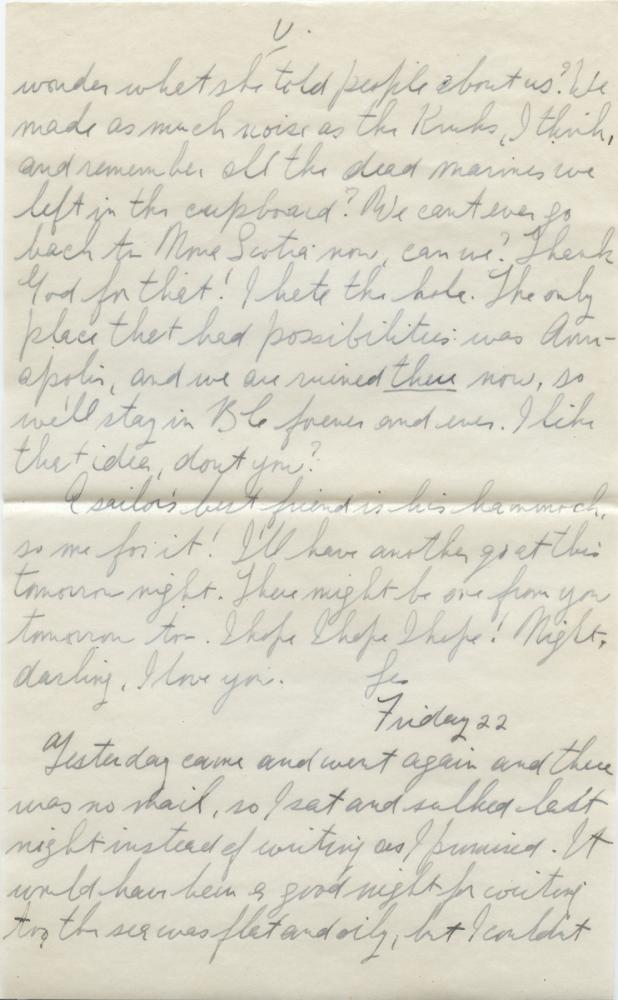 V.
wonder what she told people about us? We
made as much noise as the Kruks, I think,
and remember all the dead marines we
left in the cupboard? We cant ever go
back to Nova Scotia now, can we? Thank
God for that! I hate the hole. The only
place that had possibilities was Ann-
apolis, and we are ruined there now, so
we'll stay in BC forever and ever. I like
that idea, dont you?
A sailor's best friend is his hammock,
so me for it! I'll have another go at this
tomorrow night. There might be one from you
tomorrow too. I hope I hope I hope! Night,
darling, I love you. Les
Friday 22
Yesterday came and went again and there
was no mail, so I sat and sulked last
night instead of writing as I promised. It
would have been a good night for writing
too, the sea was flat and oily, but I couldnt